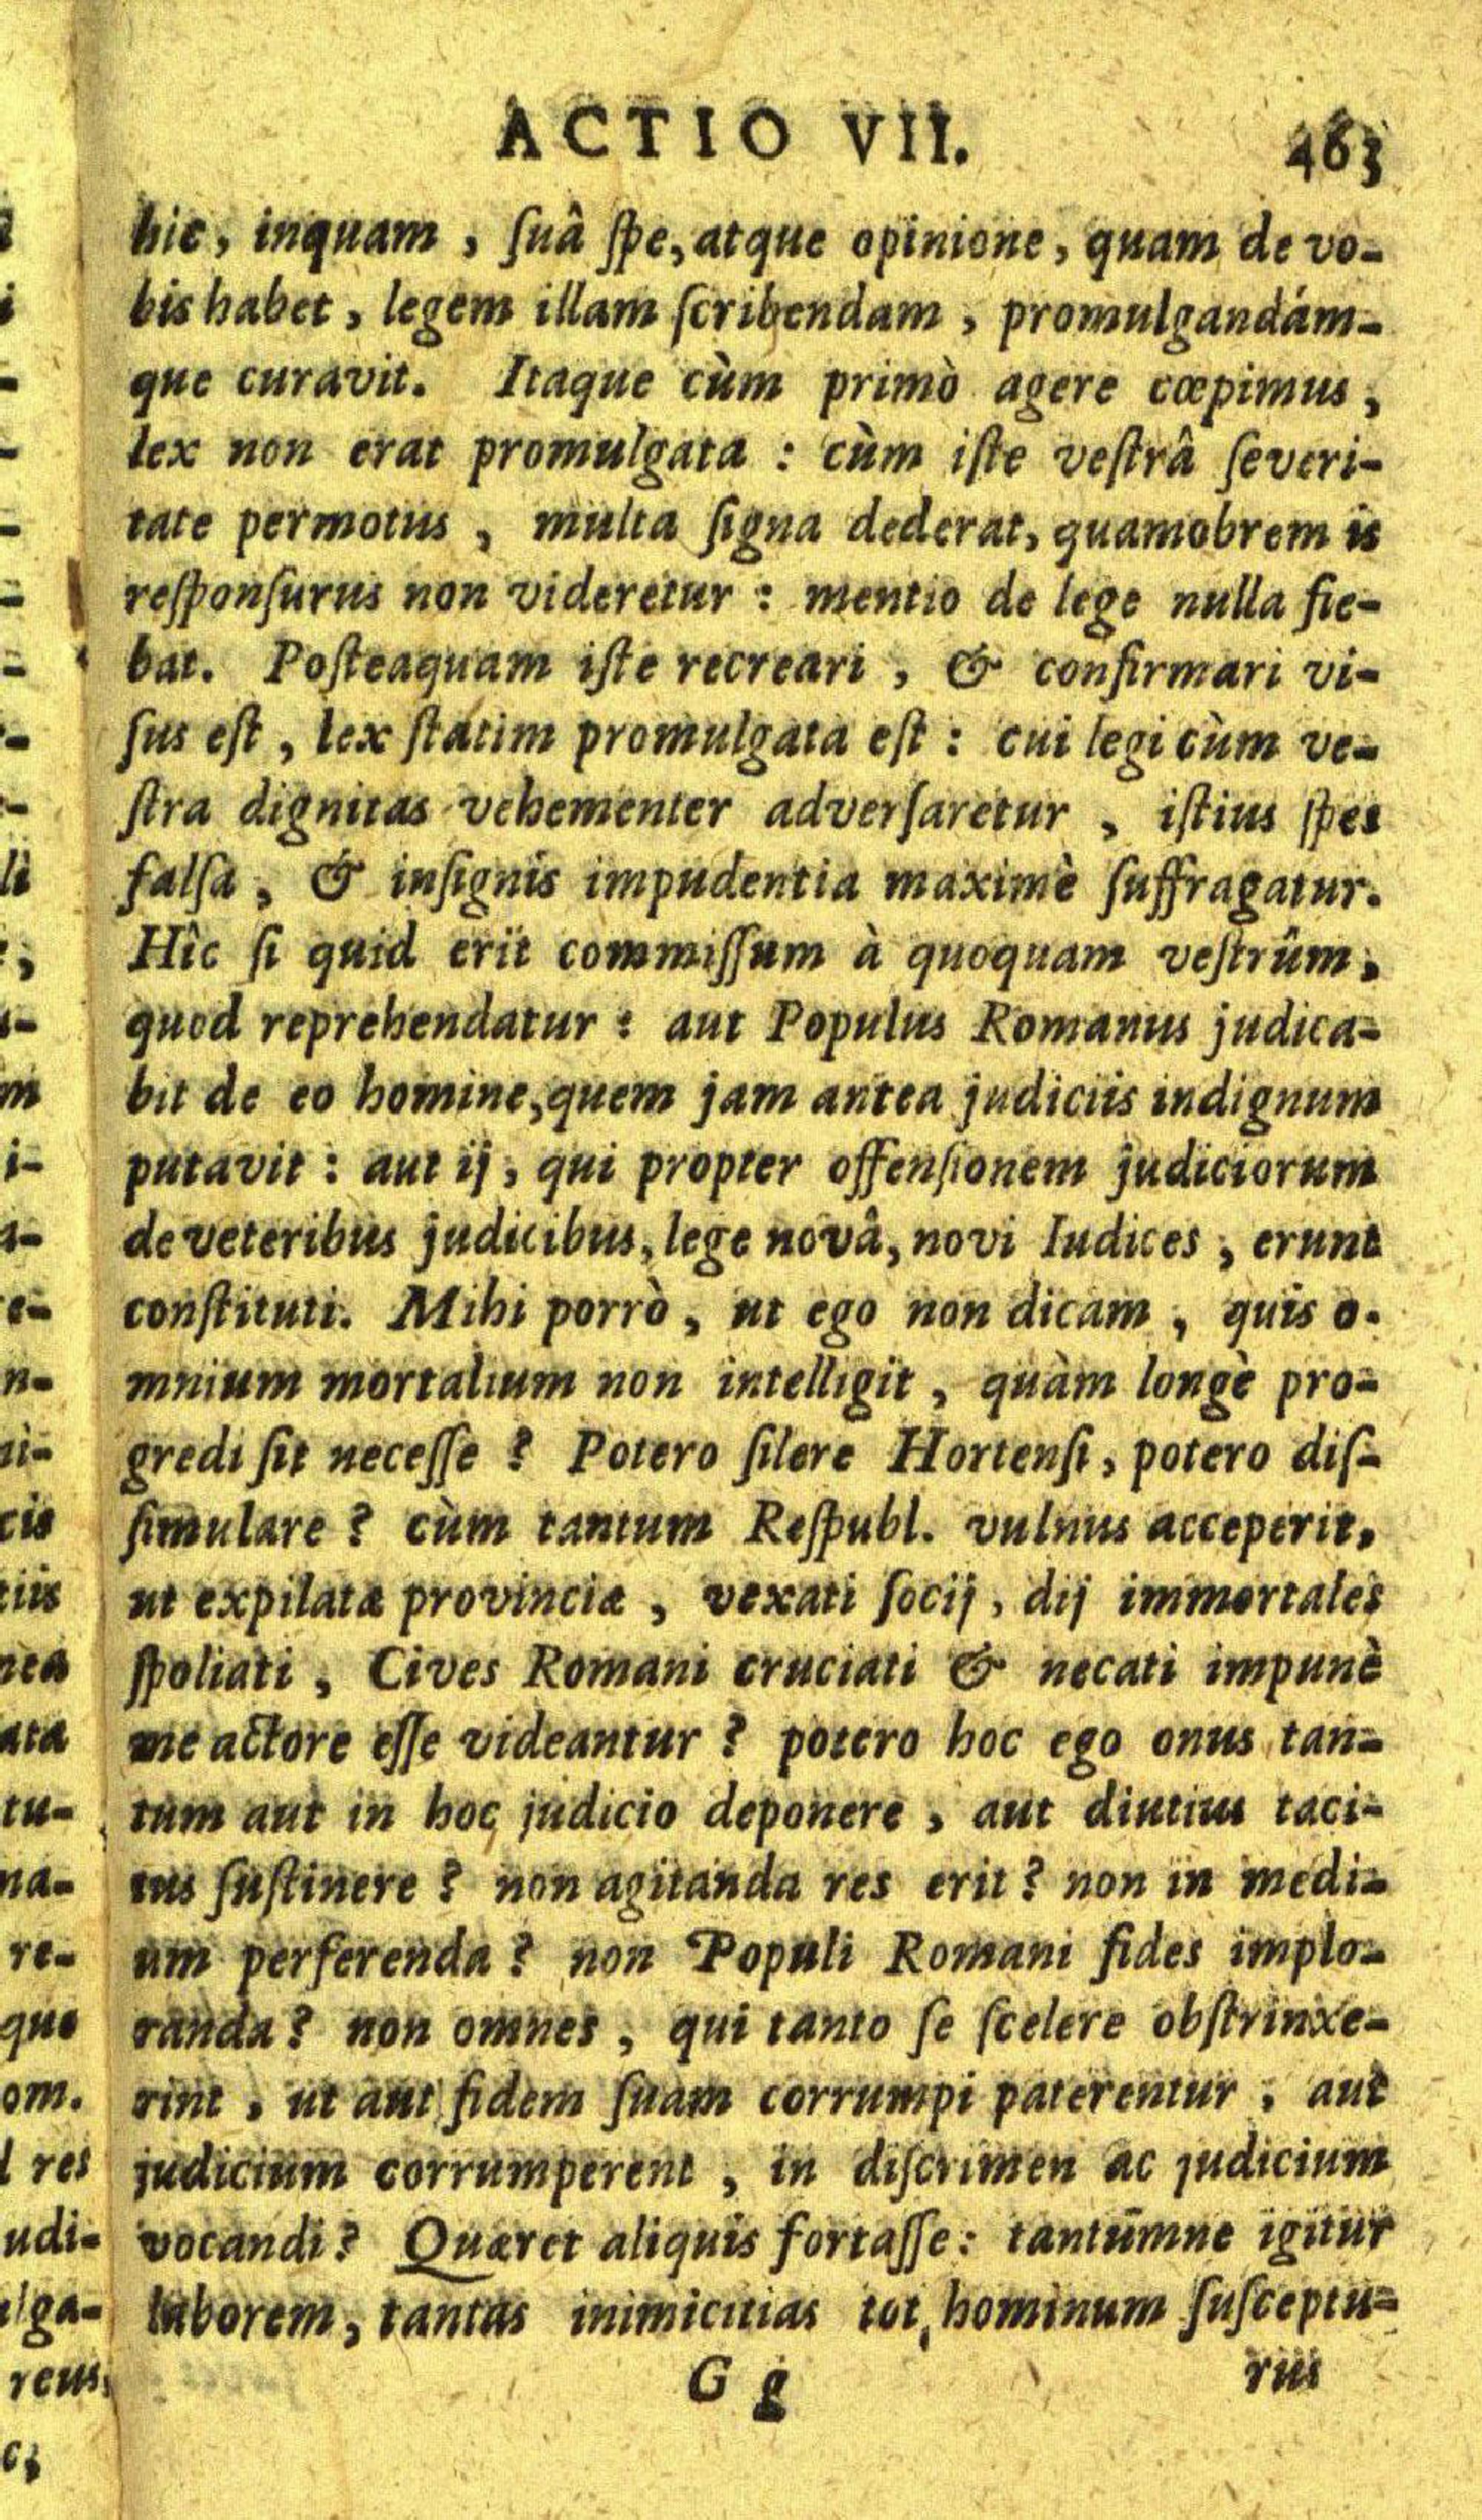 ACTIO VII. 463
hic, inquam, ſuâ ſpe, atque opinione, quam de vo-
bis habet, legem illam ſcribendam, promulgandám-
que curavit. Itaque cùm primò agere cœpimus,
lex non erat promulgata : cùm iſte veſtrâ ſeveri-
tate permotus, multa ſigna dederat, quamobrem is
reſponſurus non videretur : mentio de lege nulla fie-
bat. Poſteaquam iſte recreari, & confirmari vi-
ſus eſt, lex ſtatim promulgata eſt : cui legi cùm ve-
ſtra dignitas vehementer adverſaretur, iſtius ſpes
falſa, & inſignis impudentia maximè ſuffragatur.
Hîc ſi quid erit commiſſum à quoquam veſtrûm,
quod reprehendatur : aut Populus Romanus judica-
bit de eo homine, quem jam antea judiciis indignum
putavit : aut ij, qui propter offenſionem judiciorum
de veteribus judicibus, lege novâ, novi Iudices, erunt
conſtituti. Mihi porrò, ut ego non dicam, quis o-
mnium mortalium non intelligit, quàm longè pro-
gredi ſit neceſſe ? Potero ſilere Hortenſi, potero diſ-
ſimulare ? cùm tantum Reſpubl. vulnus acceperit,
ut expilatæ provinciæ, vexati ſocij, dij immortales
ſpoliati, Cives Romani cruciati & necati impunè
me actore eſſe videantur ? potero hoc ego onus tan-
tum aut in hoc judicio deponere, aut diutius taci-
tus ſuſtinere ? non agitanda res erit ? non in medi-
um perferenda ? non Populi Romani fides implo-
randa ? non omnes, qui tanto ſe ſcelere obſtrinxe-
rint, ut aut fidem ſuam corrumpi paterentur, aut
judicium corrumperent, in diſcrimen ac judicium
vocandi ? Quæret aliquis fortaſſe : tantúmne igitur
laborem, tantas inimicitias tot hominum ſuſceptu-
G g rus